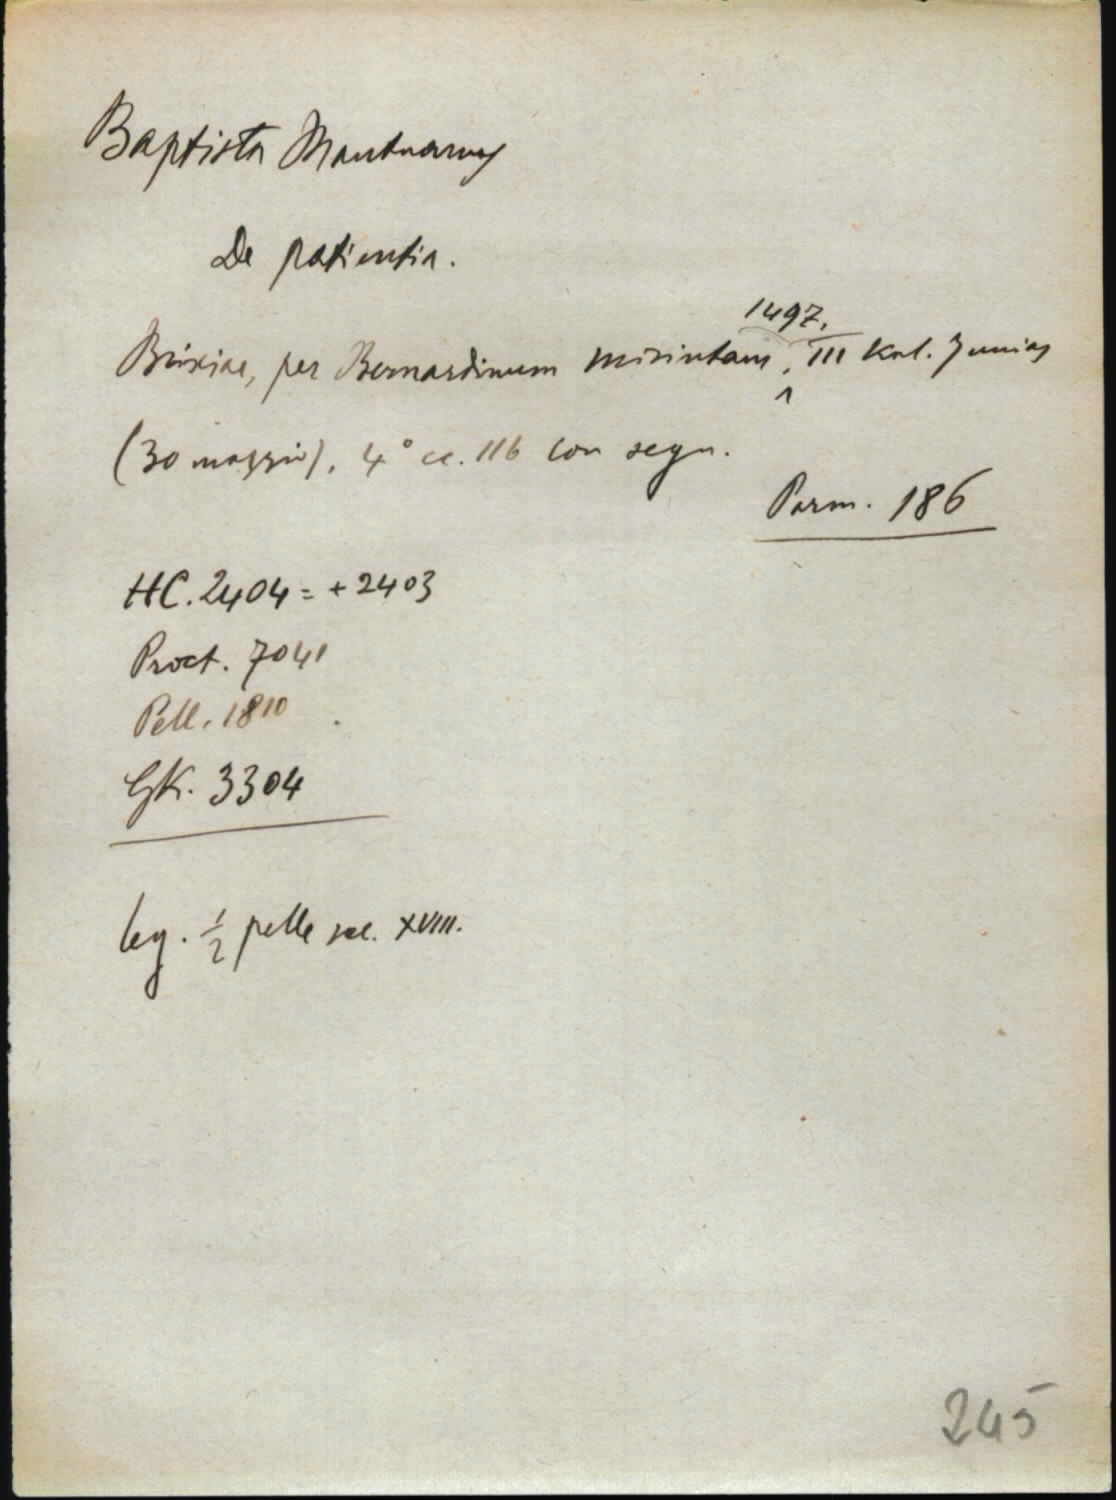 Baptista Mantuanus
De patientia.
Brixiae, per Bernardinum Misintam, 1497, III Kal. Junias
(30 maggio), 4° cc. 116 con segn.
Parm. 186
HC. 2404 = + 2403
Proct. 7041
Pell. 1810
GK. 3304
leg. ½ pelle sec. XVIII.
245